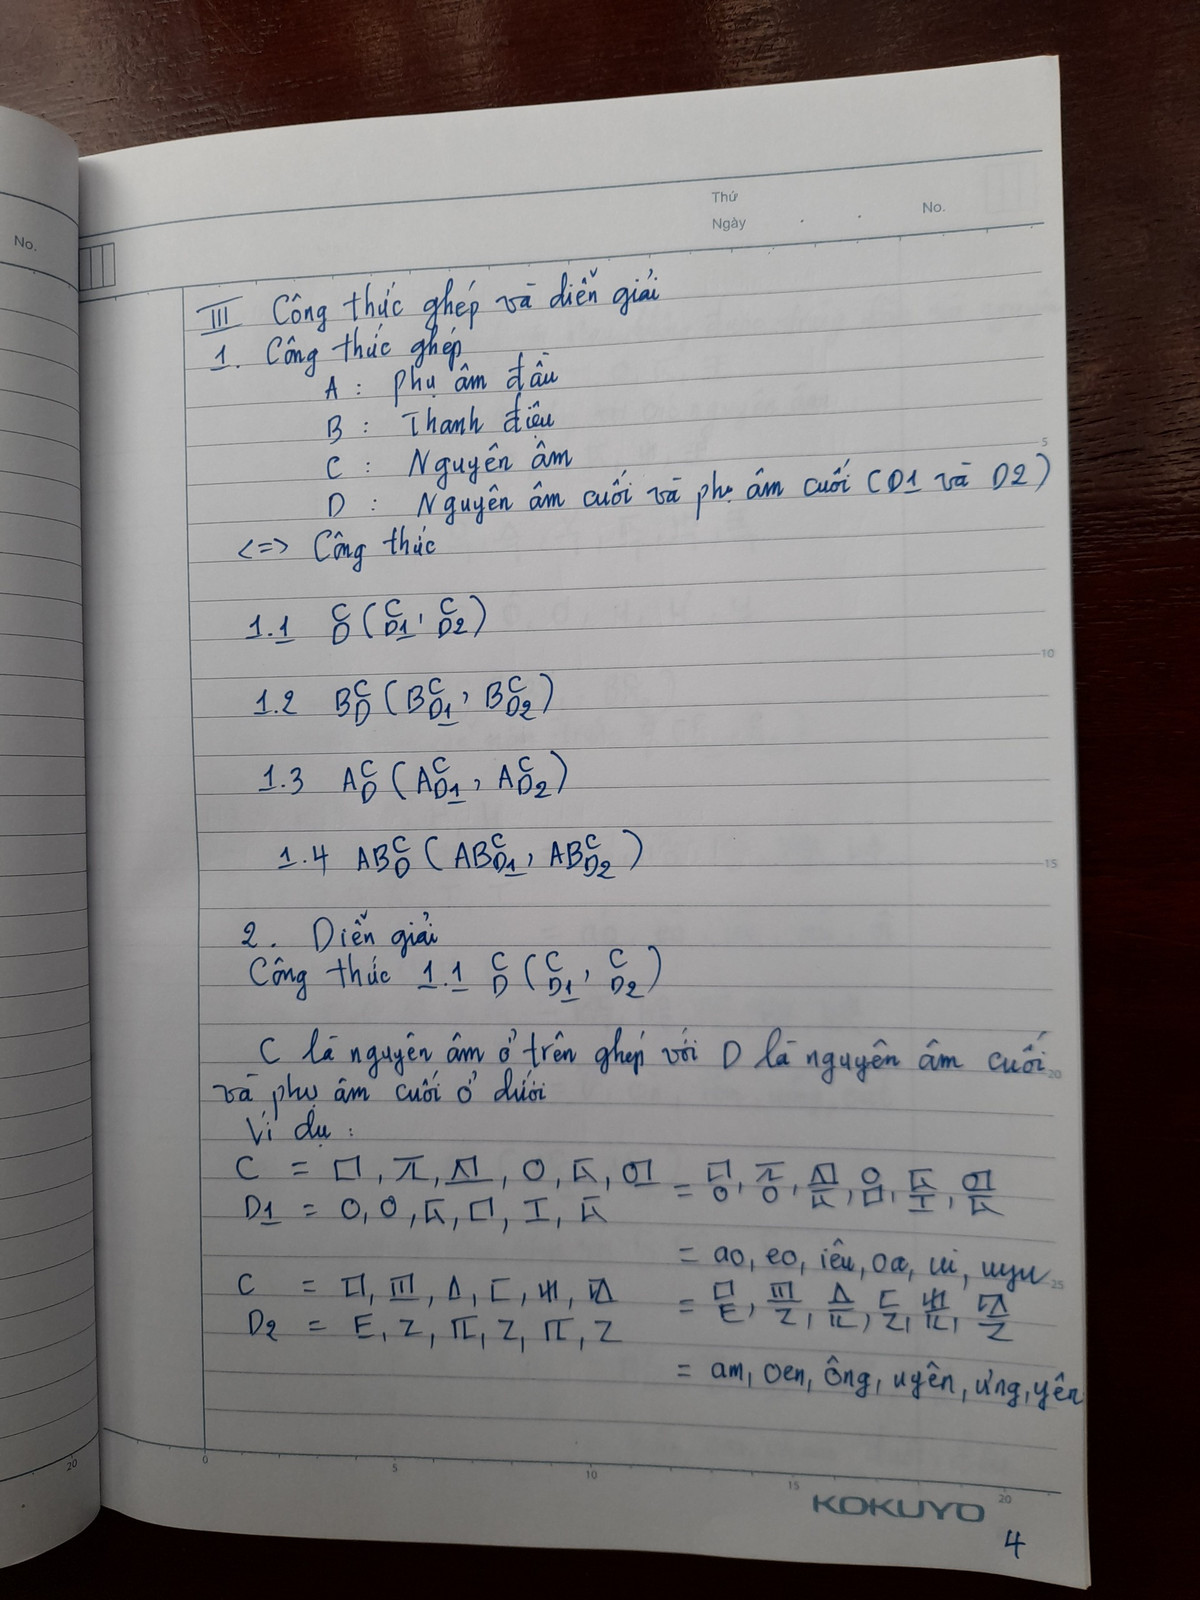 Thứ
Ngày
No.
No.
III Công thức ghép và diễn giải
1. Công thức ghép
A : phụ âm đầu
B : Thanh điệu
C : Nguyên âm
D : Nguyên âm cuối và phụ âm cuối (D1 và D2)
<=> Công thức
1.1 C/D (C/D1, C/D2)
1.2 B C/D (B C/D1, B C/D2)
1.3 A C/D (A C/D1, A C/D2)
1.4 AB C/D (AB C/D1, AB C/D2)
2. Diễn giải
Công thức 1.1 C/D (C/D1, C/D2)
C là nguyên âm ở trên ghép với D là nguyên âm cuối
và phụ âm cuối ở dưới
Ví dụ :
C =
D1 =
= ao, eo, iêu, oa, ui, uyu
C =
D2 = E, Z, Z, Z
= am, oen, ông, uyên, ưng, yên
5
10
15
20
25
0
5
10
15
20
20
KOKUYO
4